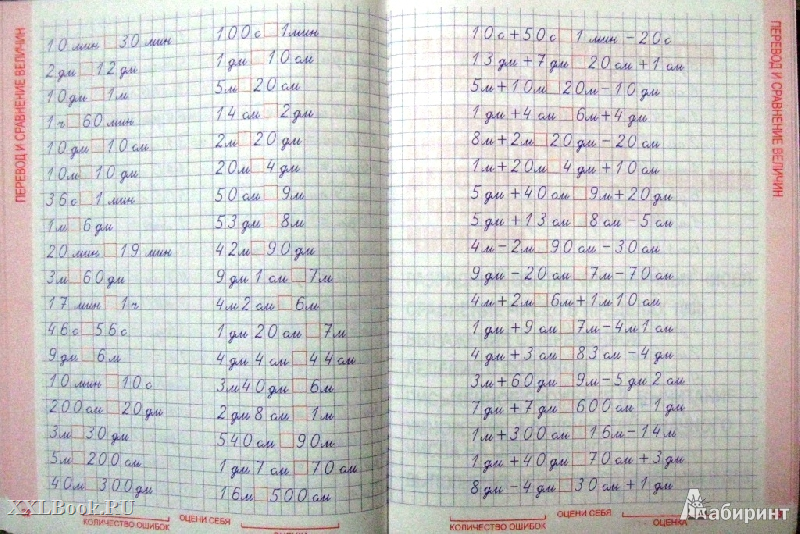 ПЕРЕВОД И СРАВНЕНИЕ ВЕЛИЧИН
10 мин □ 30 мин
2 дм □ 12 дм
10 дм □ 1 м
1 ч □ 60 мин
10 дм □ 10 см
10 м □ 10 дм
36 с □ 1 мин
1 м □ 6 дм
20 мин □ 19 мин
3 м □ 60 дм
17 мин □ 1 ч
46 с □ 56 с
9 дм □ 6 м
10 мин □ 10 с
200 см □ 20 дм
3 м □ 30 дм
5 м □ 200 см
40 м □ 300 дм
100 с □ 1 мин
1 дм □ 10 см
5 м □ 20 см
14 см □ 2 дм
2 м □ 20 дм
20 м □ 4 дм
50 см □ 9 м
53 дм □ 8 м
42 м □ 90 дм
9 дм 1 см □ 7 м
4 м 2 см □ 6 м
1 дм 20 см □ 7 м
4 дм 4 см □ 44 см
3 м 40 дм □ 6 м
2 дм 8 см □ 1 м
540 см □ 90 м
1 дм 7 см □ 70 см
16 м □ 500 см
КОЛИЧЕСТВО ОШИБОК
ОЦЕНИ СЕБЯ
ОЦЕНКА
XXLBook.RU
10 с + 50 с □ 1 мин - 20 с
13 дм + 7 дм □ 20 см + 1 см
5 м + 10 м □ 20 м - 10 дм
1 дм + 4 см □ 6 м + 4 дм
8 м + 2 м □ 20 дм - 20 см
1 м + 20 м □ 4 дм + 10 см
5 дм + 40 см □ 9 м + 20 дм
5 дм + 13 см □ 8 см - 5 см
4 м - 2 м □ 90 см - 30 см
9 дм - 20 см □ 7 м - 70 см
4 м + 2 м □ 6 м + 1 м 10 см
1 дм + 9 см □ 7 м - 4 м 1 см
4 дм + 3 см □ 83 см - 4 дм
3 м + 60 дм □ 9 м - 5 дм 2 см
7 дм + 7 дм □ 600 см - 1 дм
1 м + 300 см □ 16 м - 14 м
1 дм + 40 дм □ 70 см + 3 дм
8 дм - 4 дм □ 30 см + 1 дм
КОЛИЧЕСТВО ОШИБОК
ОЦЕНИ СЕБЯ
ОЦЕНКА
ПЕРЕВОД И СРАВНЕНИЕ ВЕЛИЧИН
Лабиринт